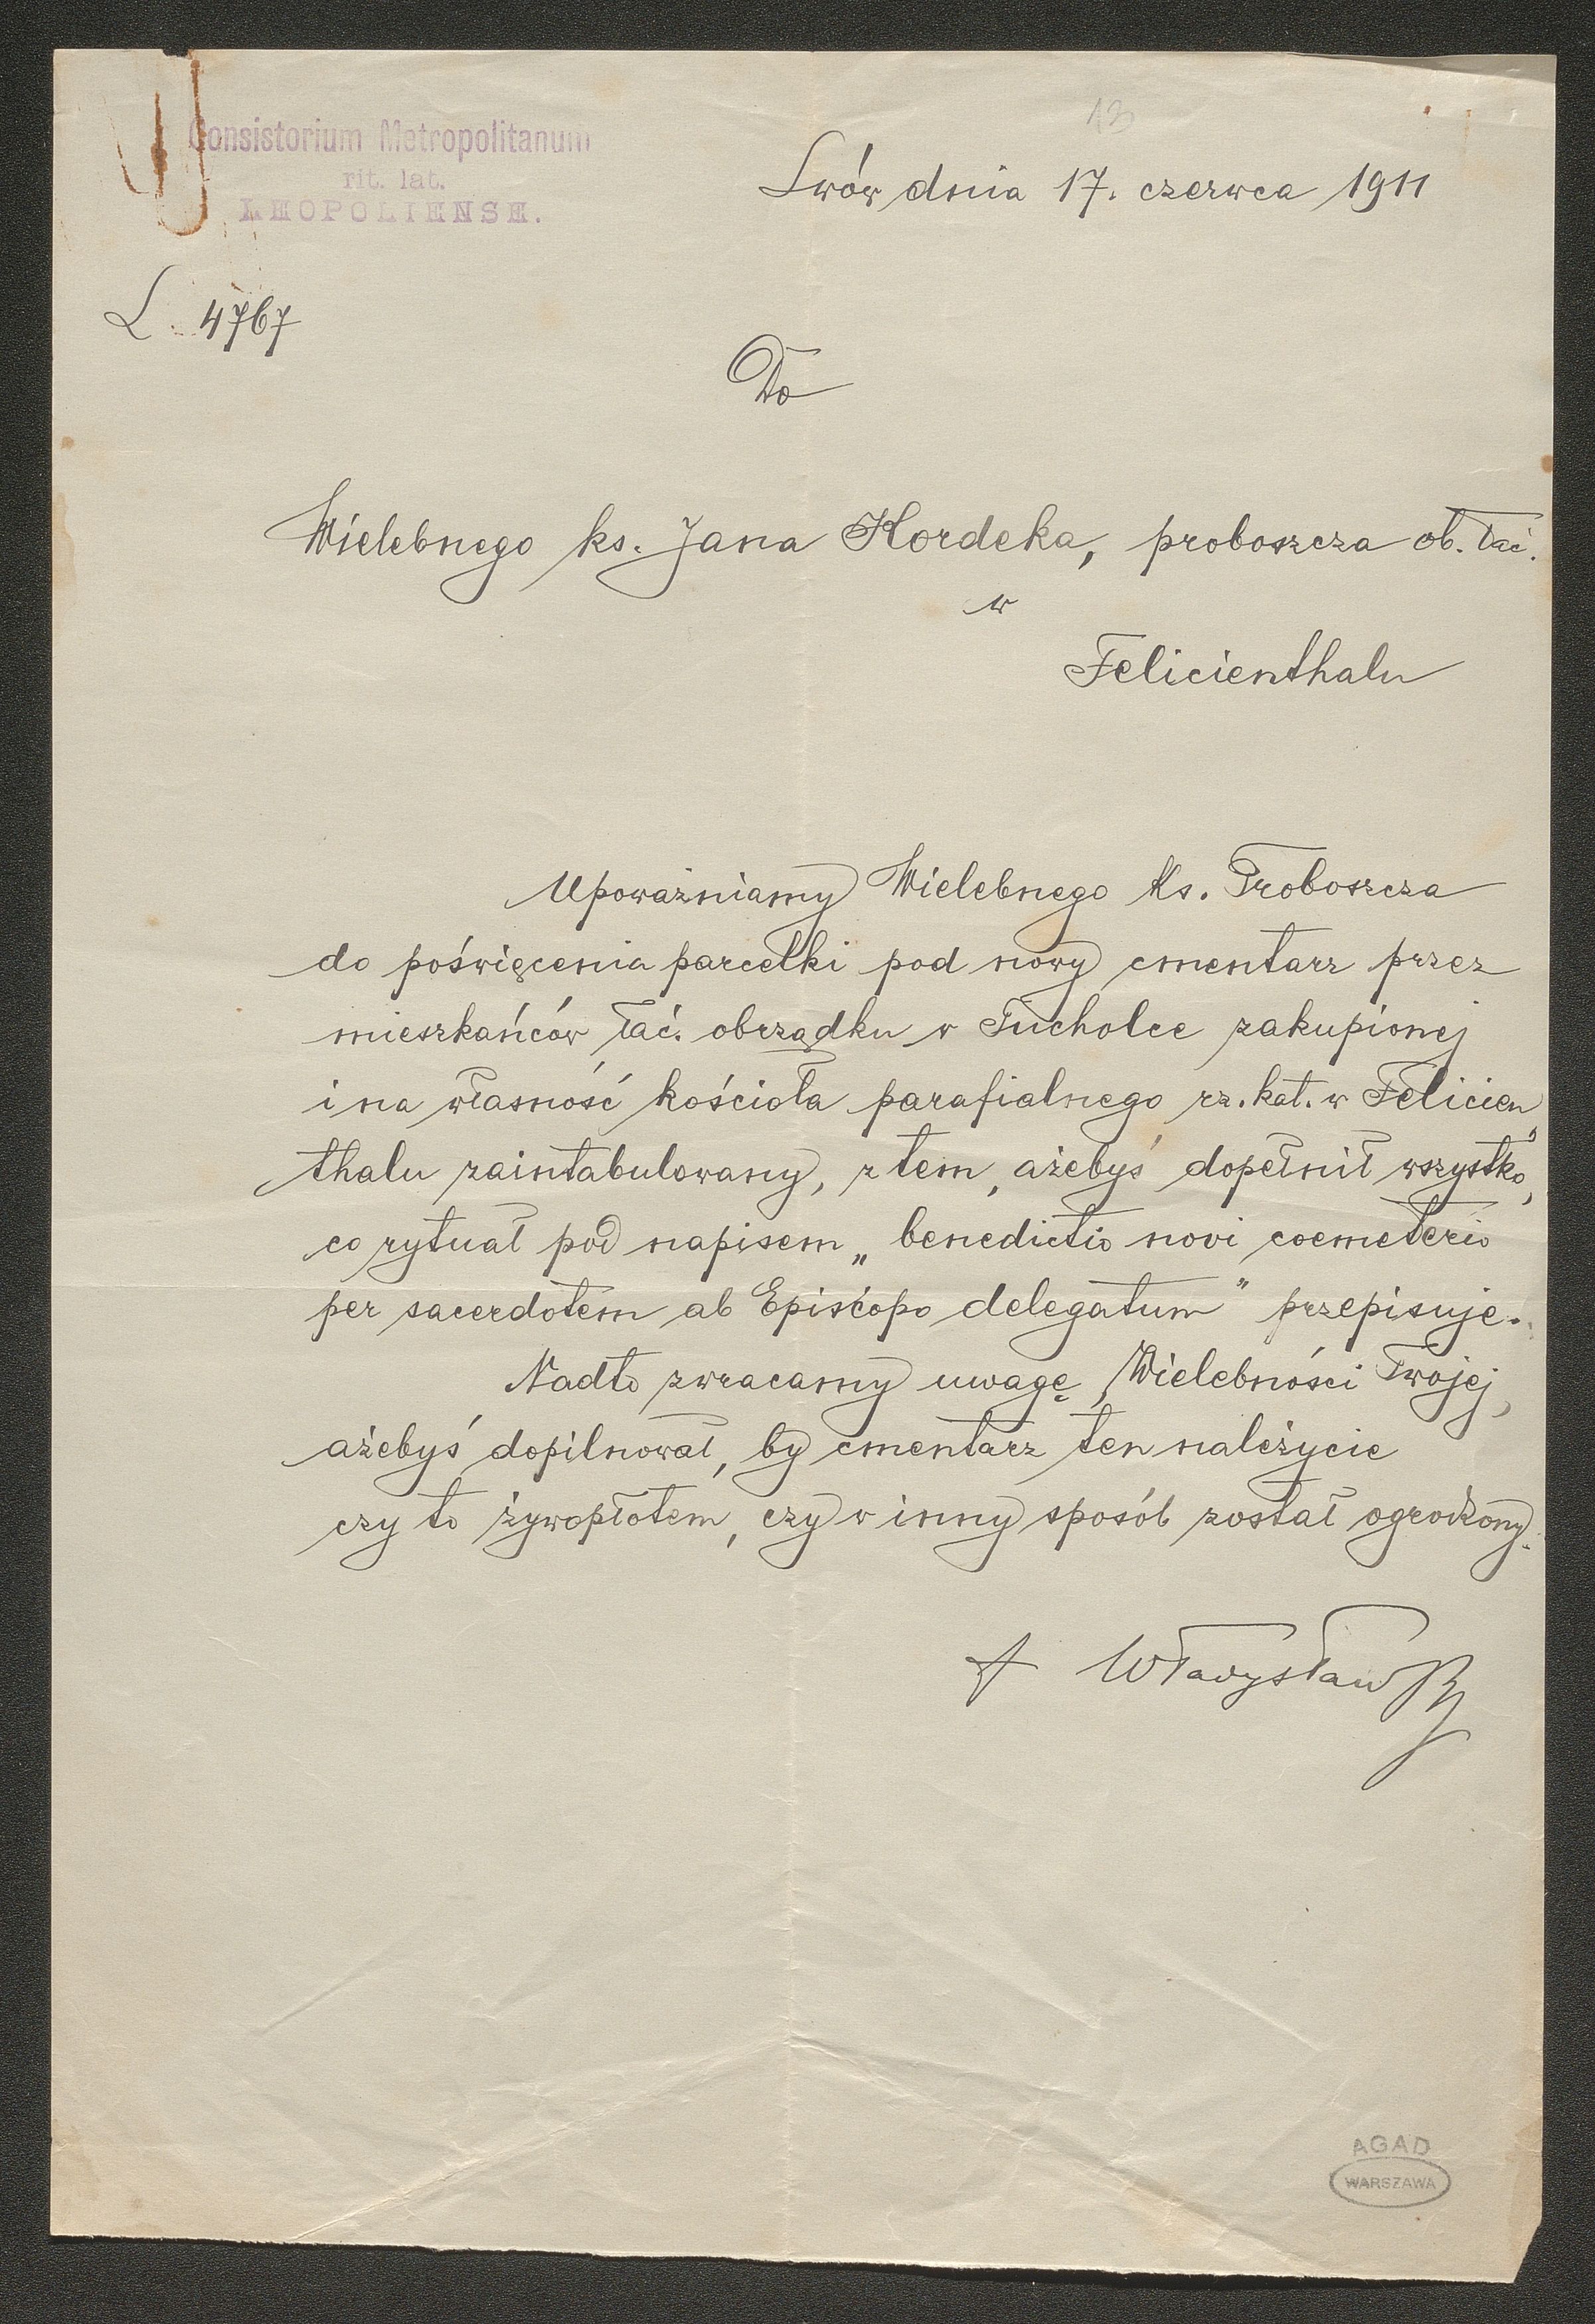 13
Consistorium Metropolitanum
rit. lat.
LEOPOLIENSE.
Lwów dnia 17. czerwca 1911
L. 4767
Do
Wielebnego ks. Jana Kordeka, proboszcza ob. łać.
w
Felicienthalu
Upoważniamy Wielebnego Ks. Proboszcza
do poświęcenia parcelki pod nowy cmentarz przez
mieszkańców łać. obrządku w Tucholce zakupionej
i na własność kościoła parafialnego rz. kat. w Felicien„
thalu zaintabulowany, z tem, ażebyś dopełnił wszystko,
co rytuał pod napisem „benedictio novi coemeterio
per sacerdotem ab Episcopo delegatum" przepisuje.
Nadto zwracamy uwagę Wielebności Twojej,
ażebyś dopilnował, by cmentarz ten należycie
czy to żywopłotem, czy w inny sposób został ogrodzony.
+ Władysław
AGAD
WARSZAWA